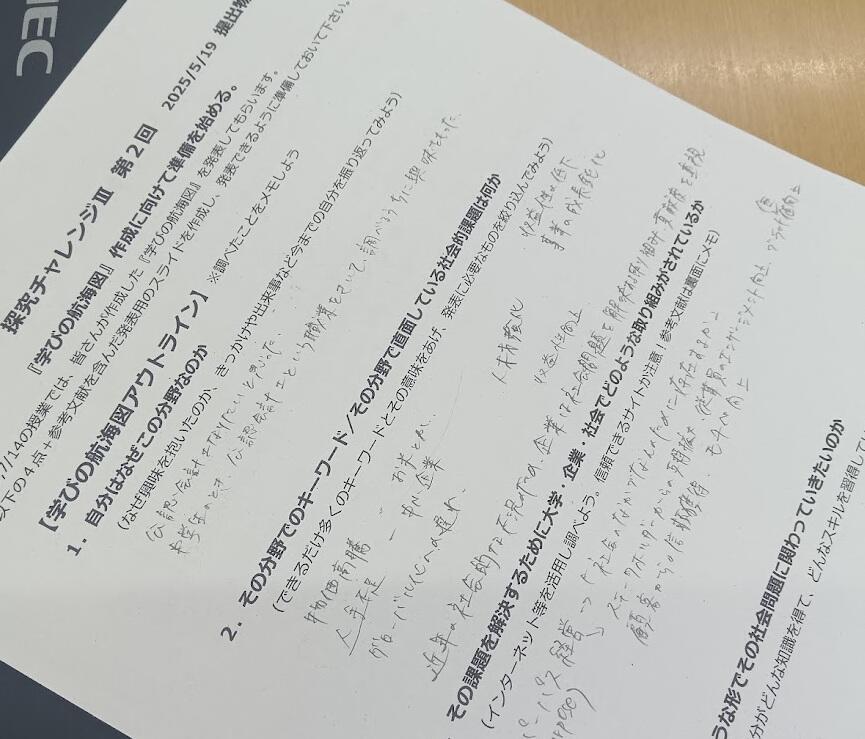 NEC
探究チャレンジⅢ 第2回 2025/5/19 提出物
『学びの航海図』作成に向けて準備を始める。
7/14の授業では、皆さんが作成した『学びの航海図』を発表してもらいます。
以下の4点+参考文献を含んだ発表用のスライドを作成し、発表できるように準備しておいて下さい。
【学びの航海図アウトライン】 ※調べたことをメモしよう
1. 自分はなぜこの分野なのか
(なぜ興味を抱いたのか、きっかけや出来事など今までの自分を振り返ってみよう)
公認会計士になりたいと思った。
中学生のとき、公認会計士という職業をきいて、調べるうちに興味をもった。
2. その分野でのキーワード/その分野で直面している社会的課題は何か
(できるだけ多くのキーワードとその意味をあげ、発表に必要なものを絞り込んでみよう)
物価高騰 お米とか 収益性の低下
人手不足 ー 中小企業 人材強化 事業の成長鈍化
グローバル化への遅れ 収益性向上
近年の社会的な不況の中、企業は社会問題を解決する取り組み・貢献度を重視
その課題を解決するために大学・企業・社会でどのような取り組みがされているか
(インターネット等を活用し調べよう。信頼できるサイトか注意!参考文献は裏面にメモ)
パーパス経営 →「社会のなかでなんのために存在するか」
ステークホルダーからの 従業員のエンゲージメント向上 ブランド価値向上
顧客からの信頼獲得、モチベ向上
うな形でその社会問題に関わっていきたいのか
分がどんな知識を得て、どんなスキルを習得して